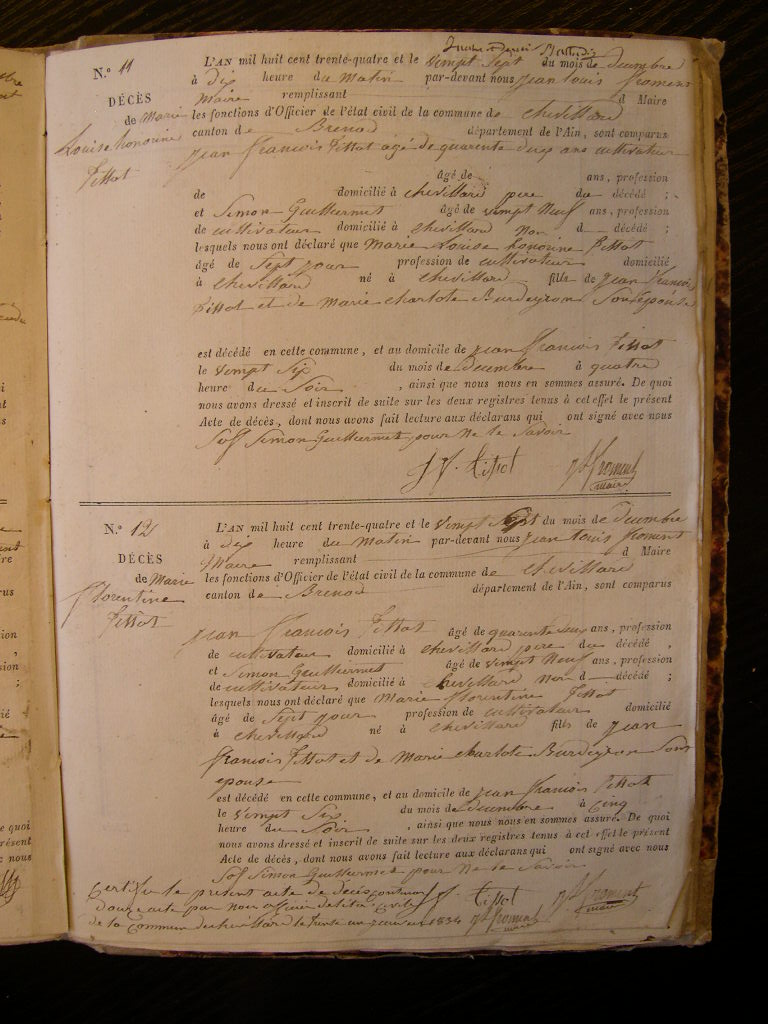 N.º 11
DÉCÈS
de Marie
Louise honorine
Tissot
L'AN mil huit cent trente-quatre et le vingt Sept du mois de decembre
à dix heure du matin par-devant nous jean Louis froment
Maire remplissant d Maire
les fonctions d'Officier de l'état civil de la commune de chevillard
canton de Brenod département de l'Ain, sont comparus
jean francois Tissot agé de quarente deux ans cultivateur
âgé de ans, profession
de domicilié à chevillard pere du décédé ;
et Simon Guilliermet âgé de vingt Neuf ans, profession
de cultivateur domicilié à chevillard Non d décédé ;
lesquels nous ont déclaré que Marie Louise honorine Tissot
âgé de Sept jour profession de cultivateur domicilié
à chevillard né à chevillard fille de jean francois
Tissot et de Marie charlote Burdeyron Son épouse
est décédé en cette commune, et au domicile de jean francois Tissot
le vingt Six du mois de decembre à quatre
heure du Soir , ainsi que nous nous en sommes assuré. De quoi
nous avons dressé et inscrit de suite sur les deux registres tenus à cet effet le présent
Acte de décès, dont nous avons fait lecture aux déclarans qui ont signé avec nous
Sof Simon Guilliermet pour Ne le Savoir
J f. Tissot
jL froment
maire
N.º 12
DÉCÈS
de Marie
florentine
Tissot
L'AN mil huit cent trente-quatre et le vingt Sept du mois de decembre
à dix heure du Matin par-devant nous jean Louis froment
Maire remplissant d Maire
les fonctions d'Officier de l'état civil de la commune de chevillard
canton de Brenod département de l'Ain, sont comparus
jean francois Tissot âgé de quarente deux ans, profession
de cultivateur domicilié à chevillard pere du décédé ,
et Simon Guilliermet âgé de vingt Neuf ans, profession
de cultivateur domicilié à chevillard Non d décédé ;
lesquels nous ont déclaré que Marie florentine Tissot
âgé de Sept jour profession de cultivateur domicilié
à chevillard né à chevillard fille de jean
francois Tissot et de Marie charlote Burdeyron Son
epouse
est décédé en cette commune, et au domicile de jean francois Tissot
le vingt Six du mois de decembre à Cinq
heure du Soir , ainsi que nous nous en sommes assuré. De quoi
nous avons dressé et inscrit de suite sur les deux registres tenus à cet effet le présent
Acte de décès, dont nous avons fait lecture aux déclarans qui ont signé avec nous
Sof Simon Guilliermet pour Ne le Savoir
J f. Tissot
jL froment
maire
Certifie le present acte de deces contenant
douze acte par Nous officier de l'état civil
de la Commune de chevillard le trente un janvier 1834
jL froment
maire